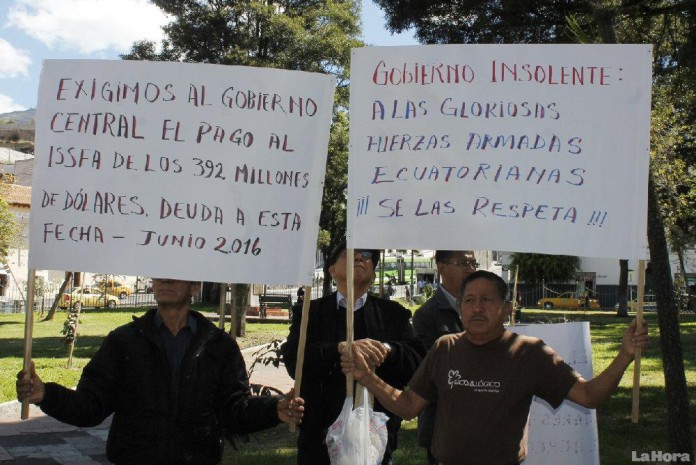 EXIGIMOS AL GOBIERNO
CENTRAL EL PAGO AL
ISSFA DE LOS 392 MILLONES
DE DÓLARES. DEUDA A ESTA
FECHA - JUNIO 2016
GOBIERNO INSOLENTE:
A LAS GLORIOSAS
FUERZAS ARMADAS
ECUATORIANAS
¡¡¡ SE LAS RESPETA !!!
LaHora